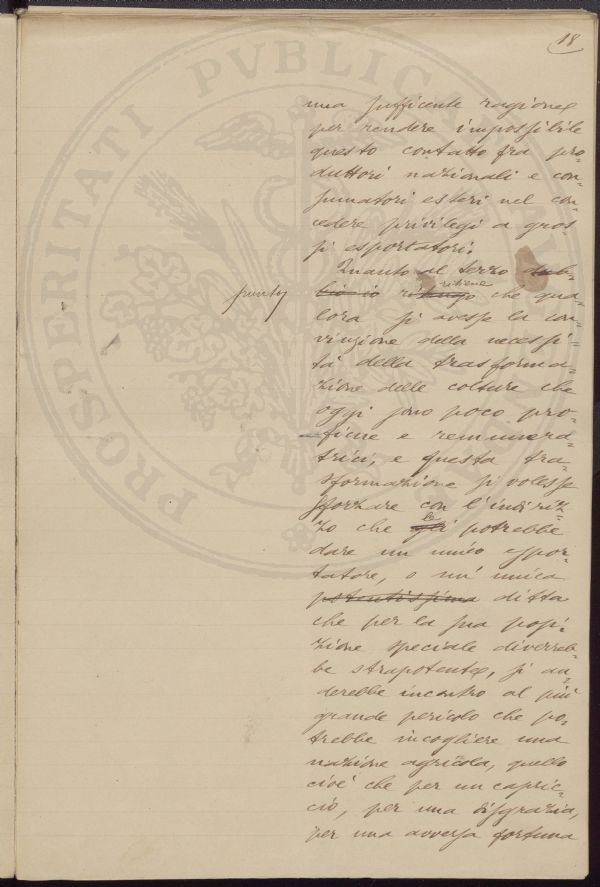 18
una sufficente ragione
per rendere impossibile
questo contatto fra pro=
duttori nazionali e con=
sumatori esteri nel con=
cedere privilegi a gros=
si esportatori.
Quanto al terzo dub=
punto bio io ritengo ritiene che qua=
lora si avesse la con=
vinzione della necessi=
tà della trasforma=
zione delle colture che
oggi sono poco pro=
ficue e remunera=
trici, e questa tra=
sformazione si volesse
sforzare con l'indiriz=
zo che gli le potrebbe
dare un unico espor=
tatore, o un' unica
potentissima ditta
che per la sua posi=
zione speciale diverreb=
be strapotente, si an=
derebbe incontro al più
grande pericolo che po=
trebbe incogliere una
nazione agricola, quello
cioè che per un capric=
cio, per una disgrazia,
per una avversa fortuna
PROSPERITATI PVBLICAE